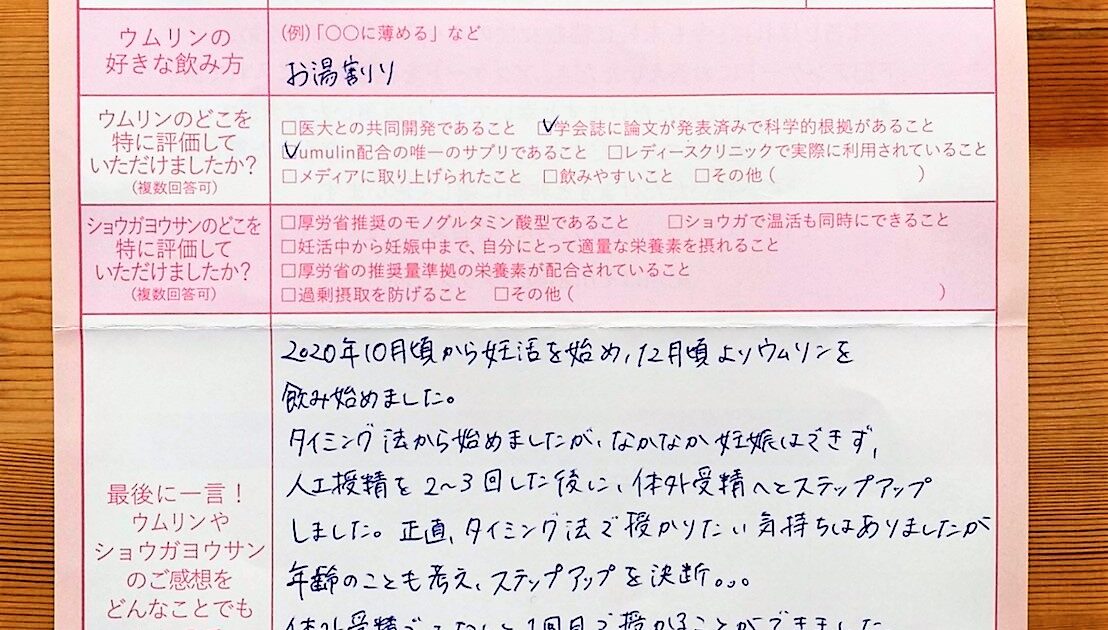 ウムリンの
好きな飲み方
(例)「〇〇に薄める」など
お湯割り
ウムリンのどこを
特に評価して
いただけましたか?
(複数回答可)
□医大との共同開発であること ☑学会誌に論文が発表済みで科学的根拠があること
☑umulin配合の唯一のサプリであること □レディースクリニックで実際に利用されていること
□メディアに取り上げられたこと □飲みやすいこと □その他( )
ショウガヨウサンのどこを
特に評価して
いただけましたか?
(複数回答可)
□厚労省推奨のモノグルタミン酸型であること □ショウガで温活も同時にできること
□妊活中から妊娠中まで、自分にとって適量な栄養素を摂れること
□厚労省の推奨量準拠の栄養素が配合されていること
□過剰摂取を防げること □その他( )
最後に一言!
ウムリンや
ショウガヨウサン
のご感想を
どんなことでも
2020年10月頃から妊活を始め、12月頃よりウムリンを
飲み始めました。
タイミング法から始めましたが、なかなか妊娠はできず、
人工授精を2~3回した後に、体外受精へとステップアップ
しました。正直、タイミング法で授かりたい気持ちはありましたが
年齢のことも考え、ステップアップを決断。。。
体外受精で 1回目で授かることができました